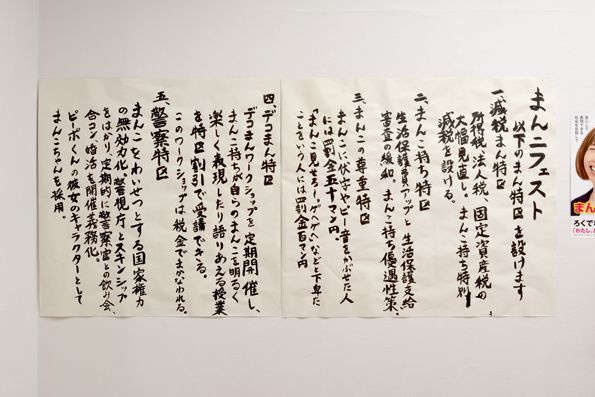 まんニフェスト
以下のまん特区を設けます
一、減税まん特区
所得税、法人税、固定資産税の
大幅見直し。まんこ持ち特別
減税を設ける。
二、まんこ持ち特区
生活保護費アップと生活保護支給
審査の緩和。まんこ持ち優遇性策。
三、まんこの尊重特区
まんこに伏字やピー音をかぶせた人
には罰金五十マン円
「まんこ見せろ〜グヘヘグヘ」などと下卑た
ことをいう人には罰金百マン円
四、デコまん特区
デコまんワークショップを定期開催し、
まんこ持ちが自らのまんこを明るく
楽しく表現したり語りあえる授業
を特区割引で受講できる。
このワークショップは税金でまかなわれる。
五、警察特区
まんこをわいせつとする国家権力
の無効力化。警視庁とスキンシップ
をはかり、定期的に警察官との飲み会、
合コン、婚活を開催義務化。
ピーポくんの彼女のキャラクターとして
まんこちゃんを採用。
まん
ろくで